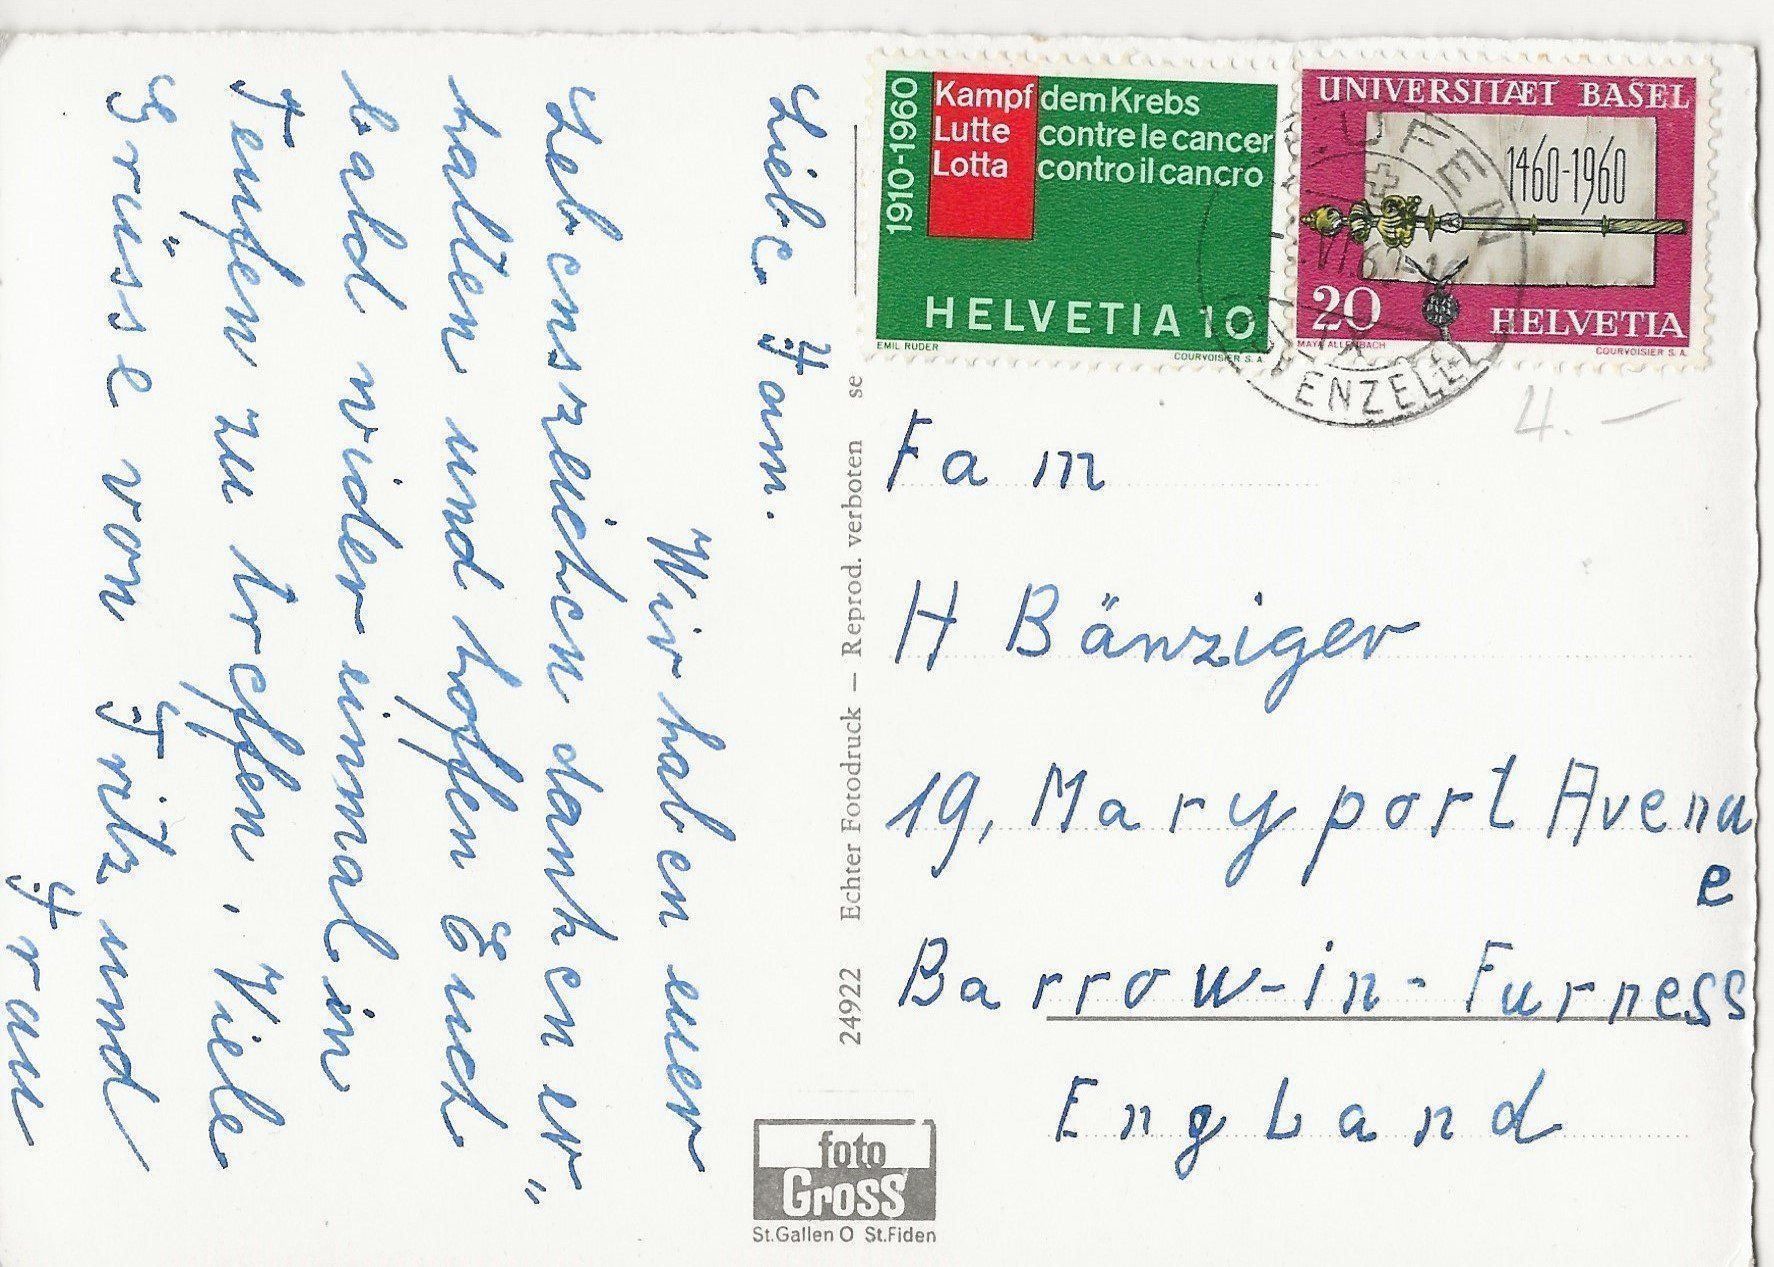 Liebe Fam.
Wir haben euer
Lebenszeichen dankend er"
halten und hoffen Euch
bald wider einmal in
Teufen zu treffen. Viele
Grüsse von Fritz und
Frau
1910-1960
Kampf dem Krebs
Lutte contre le cancer
Lotta contro il cancro
HELVETIA 10
EMIL RUDER
COURVOISIER S.A.
UNIVERSITÆT BASEL
1460-1960
20
HELVETIA
MAYA ALLENBACH
COURVOISIER S.A.
4.-
Fam
H Bänziger
19, Maryport Avenu
e
Barrow-in-Furness
England
24922 Echter Fotodruck – Reprod. verboten se
foto
Gross
St.Gallen O St.Fiden